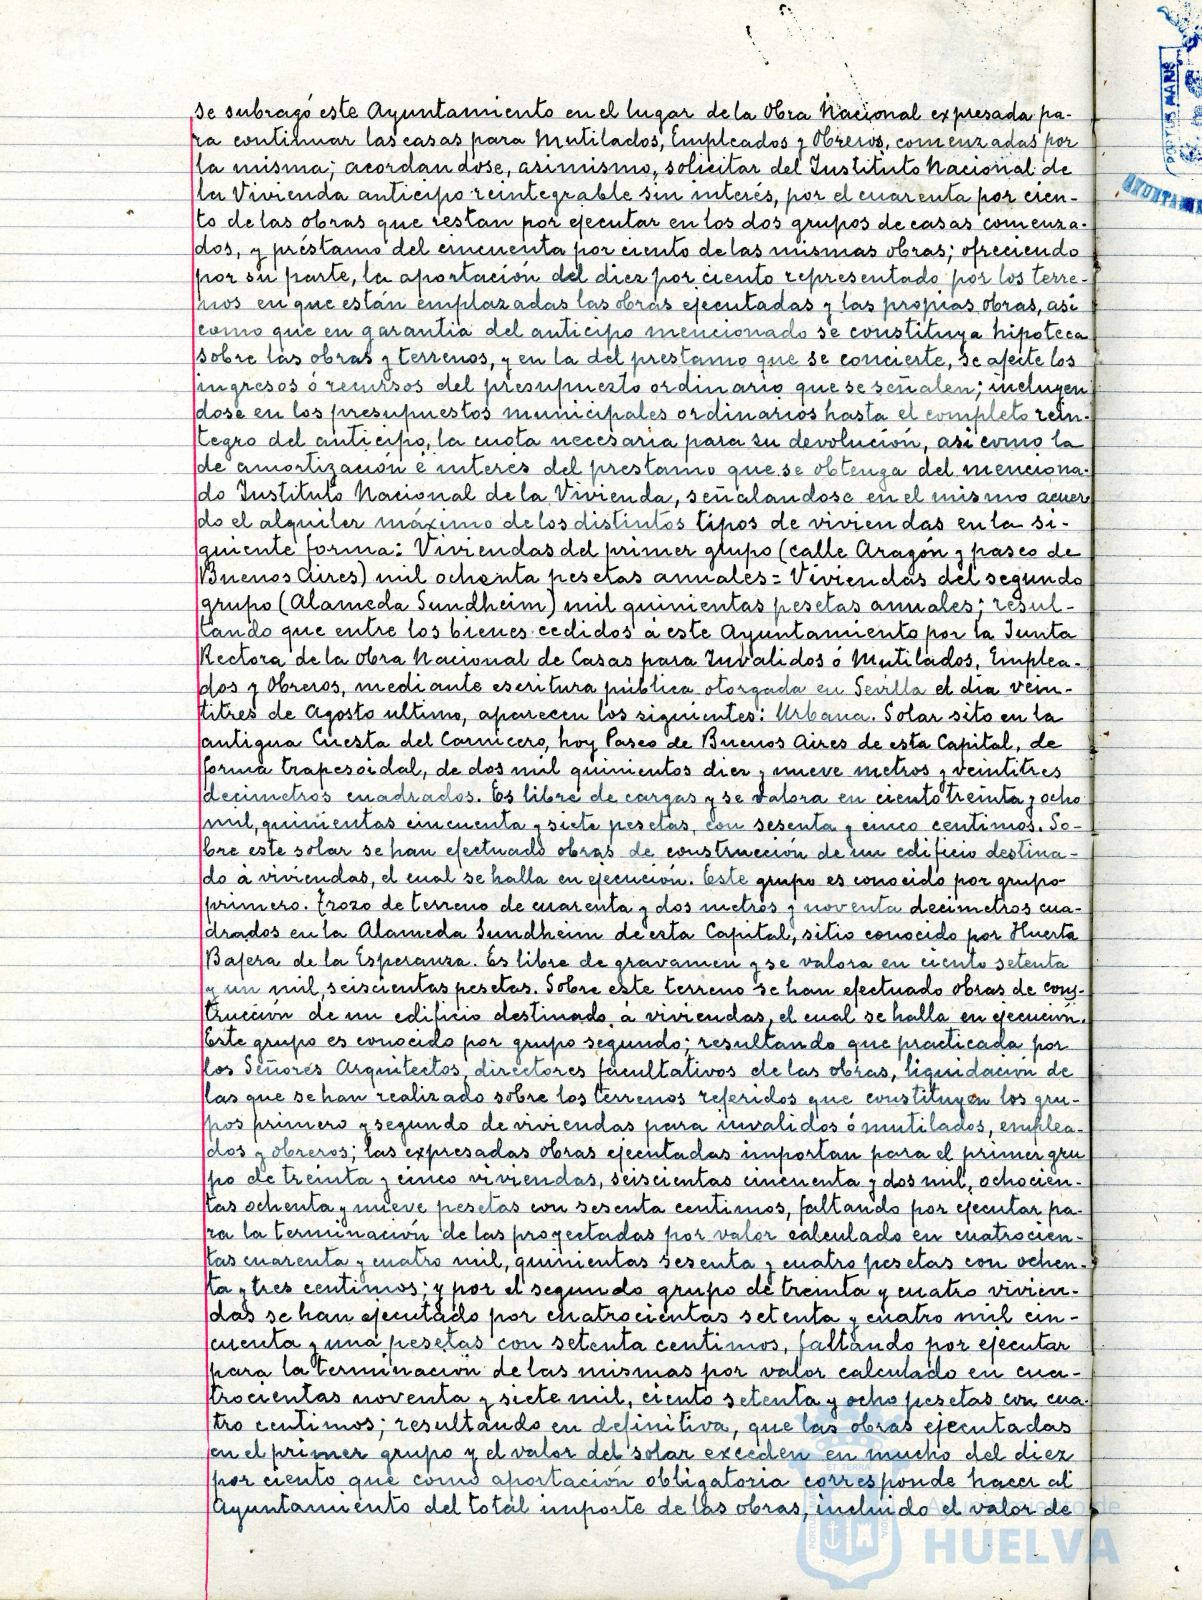 se subragó este Ayuntamiento en el lugar de la Obra Nacional expresada pa-
ra continuar las casas para Mutilados, Empleados y Obreros, comenzadas por
la misma; acordandose, asimismo, solicitar del Instituto Nacional de
la Vivienda anticipo reintegrable sin interés, por el cuarenta por cien-
to de las obras que restan por ejecutar en los dos grupos de casas comenza-
dos, y préstamo del cincuenta por ciento de las mismas obras; ofreciendo
por su parte, la aportación del diez por ciento representado por los terre-
nos en que están emplazadas las obras ejecutadas y las propias obras, así
como que en garantia del anticipo mencionado se constituya hipoteca
sobre las obras y terrenos, y en la del prestamo que se concierte, se afecte los
ingresos ó recursos del presupuesto ordinario que se señalen; incluyen
dose en los presupuestos municipales ordinarios hasta el completo rein-
tegro del anticipo, la cuota necesaria para su devolución, asi como la
de amortización é interés del prestamo que se obtenga del menciona-
do Instituto Nacional de la Vivienda, señalandose en el mismo acuer
do el alquiler máximo de los distintos tipos de viviendas en la si-
guiente forma: Viviendas del primer grupo (calle Aragón y paseo de
Buenos Aires) mil ochenta pesetas anuales= Viviendas del segundo
grupo (Alameda Sundheim) mil quinientas pesetas anuales; resul-
tando que entre los bienes cedidos á este Ayuntamiento por la Junta
Rectora de la Obra Nacional de Casas para Invalidos ó Mutilados, Emplea-
dos y Obreros, mediante escritura pública otorgada en Sevilla el dia vein-
titres de Agosto ultimo, aparecen los siguientes: Urbana. Solar sito en la
antigua Cuesta del Carnicero, hoy Paseo de Buenos Aires de esta Capital, de
forma trapesoidal, de dos mil quinientos diez y nueve metros y veintitres
decimetros cuadrados. Es libre de cargas y se valora en ciento treinta y ocho
mil, quinientas cincuenta y siete pesetas, con sesenta y cinco centimos. So-
bre este solar se han efectuado obras de construcción de un edificio destina-
do á viviendas, el cual se halla en ejecución. Este grupo es conocido por grupo
primero. Trozo de terreno de cuarenta y dos metros y noventa decimetros cua-
drados en la Alameda Sundheim de esta Capital, sitio conocido por Huerta
Bajera de la Esperanza. Es libre de gravamen y se valora en ciento setenta
y un mil, seiscientas pesetas. Sobre este terreno se han efectuado obras de cons-
trucción de un edificio destinado á viviendas, el cual se halla en ejecución.
Este grupo es conocido por grupo segundo; resultando que practicada por
los Señores Arquitectos, directores facultativos de las obras, liquidación de
las que se han realizado sobre los terrenos referidos que constituyen los gru-
pos primero y segundo de viviendas para invalidos ó mutilados, emplea-
dos y obreros; las expresadas obras ejecutadas importan para el primer gru
po de treinta y cinco viviendas, seiscientas cincuenta y dos mil, ochocien-
tas ochenta y nueve pesetas con sesenta centimos, faltando por ejecutar pa-
ra la terminación de las proyectadas por valor calculado en cuatrocien-
tas cuarenta y cuatro mil, quinientas sesenta y cuatro pesetas con ochen-
ta y tres centimos; y por el segundo grupo de treinta y cuatro vivien-
das se han ejecutado por cuatrocientas setenta y cuatro mil cin-
cuenta y una pesetas con setenta centimos, faltando por ejecutar
para la terminación de las mismas por valor calculado en cua-
trocientas noventa y siete mil, ciento setenta y ocho pesetas con cua-
tro centimos; resultando en definitiva, que las obras ejecutadas
en el primer grupo y el valor del solar exceden en mucho del diez
por ciento que como aportación obligatoria corresponde hacer al
Ayuntamiento del total importe de las obras, incluido el valor de
Ayuntamiento de
HUELVA